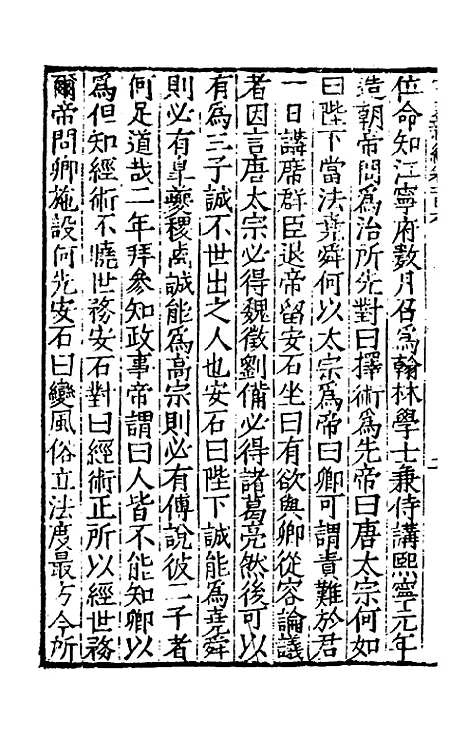 位命知江寧府數月召爲翰林學士兼侍講熙寧元年
造朝帝問爲治所先對曰擇術爲先帝曰唐太宗何如
曰陛下當法堯舜何以太宗爲帝曰卿可謂責難於君
一日講席群臣退帝留安石坐曰有欲與卿從容論議
者因言唐太宗必得魏徵劉備必得諸葛亮然後可以
有爲三子誠不世出之人也安石曰陛下誠能爲堯舜
則必有皐夔稷卨誠能爲高宗則必有傅說彼二子者
何足道哉二年拜參知政事帝謂曰人皆不能知卿以
爲但知經術不曉世務安石對曰經術正所以經世務
爾帝問卿施設何先安石曰變風俗立法度最方今所